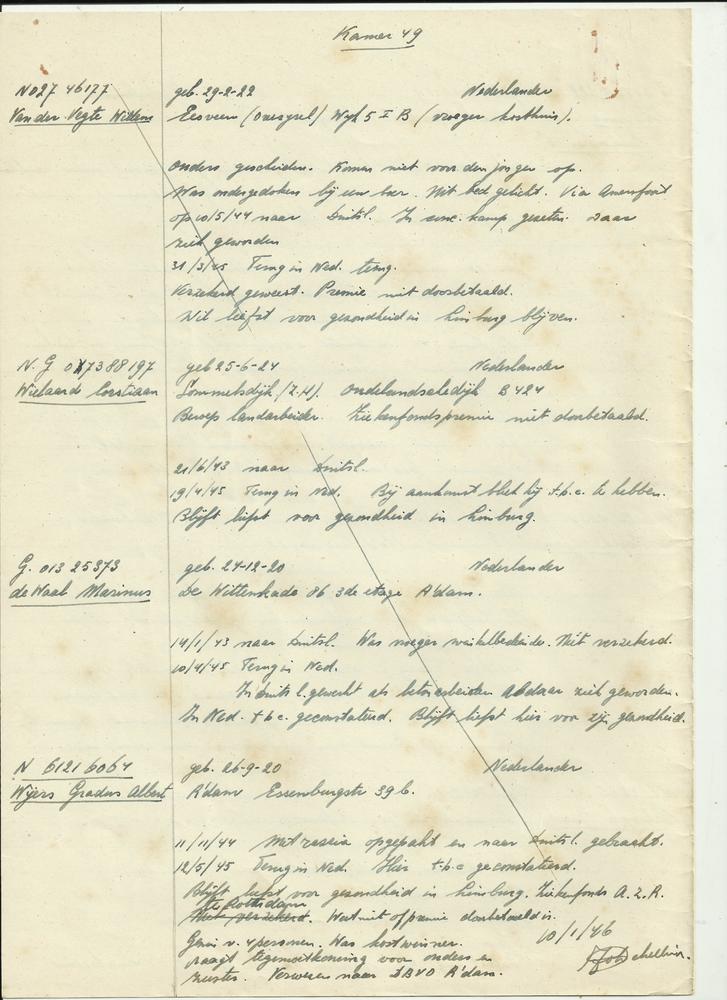 Kamer 49
N027 46177 geb. 29-2-22 Nederlander
Van der Vegte Willem Eesveen (Overijsel) Wijk 5 I B (vroeger kosthuis).
Ouders gescheiden. Komen niet voor den jongen op.
Was ondergedoken bij een boer. Uit bed gelicht. Via Amersfoort
op 10/5/44 naar Duitsl. In conc. kamp gezeten. Daar
ziek geworden
31/3/45 Terug in Ned. terug.
Verzekerd geweest. Premie niet doorbetaald.
Wil liefst voor gezondheid in Limburg blijven.
N. G 0 7388197 geb 25-6-24 Nederlander
Wielaard Corstiaan Sommelsdijk (Z.H). Oudelandschedijk B 424
Beroep landarbeider. Ziekenfondspremie niet doorbetaald.
21/6/43 naar Duitsl.
19/4/45 Terug in Ned. Bij aankomst bleek hij t.b.c. te hebben.
Blijft liefst voor gezondheid in Limburg.
G. 013 25373 geb. 24-12-20 Nederlander
de Waal Marinus De Wittenkade 86 3de etage A'dam.
14/1/43 naar Duitsl. Was vroeger winkelbediende. Niet verzekerd.
10/4/45 Terug in Ned.
In Duitsl. gewerkt als betonarbeider. Aldaar ziek geworden.
In Ned. t.b.c. geconstateerd. Blijft liefst hier voor zijn gezondheid.
N 6121 6064 geb. 26-9-20 Nederlander
Wijers Gradus Albert R'dam Essenburgstr 39 b.
11/11/44 Met razzia opgepakt en naar Duitsl. gebracht.
12/5/45 Terug in Ned. Hier t.b.c geconstateerd.
Blijft liefst voor gezondheid in Limburg. Ziekenfonds A.Z.R.
te Rotterdam
Niet verzekerd. Weet niet of premie doorbetaald is.
Gezin v. 4 personen. Was kostwinner. 10/1/46
vraagt tegemoetkoming voor ouders en
zuster. Verwezen naar DBVO R'dam.